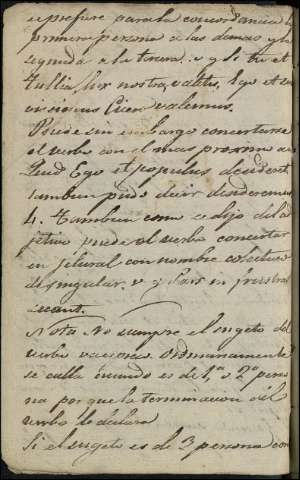 se prefiere para la concordancia la
primera persona a las demas y la
segunda a la tercera. v. g. Si tu et
Tullia, lux nostra, valetis, Ego et
Cicero valemus.
Puede sin embargo concertarse
el verbo con el mas proximo
Ego et populus
tambien pudo decir
4. Tambien como se dijo del ad
jetivo puede el verbo concertar
en plural con nombre colectivo
de singular, v. g. Pars in frustra
secant.
Nota No siempre el sugeto del
verbo va espreso. Ordinariamente
se calla cuando es de 1.ª o 2.ª perso
na por que la terminacion del
verbo lo declara
Si el sugeto es de 3 persona con